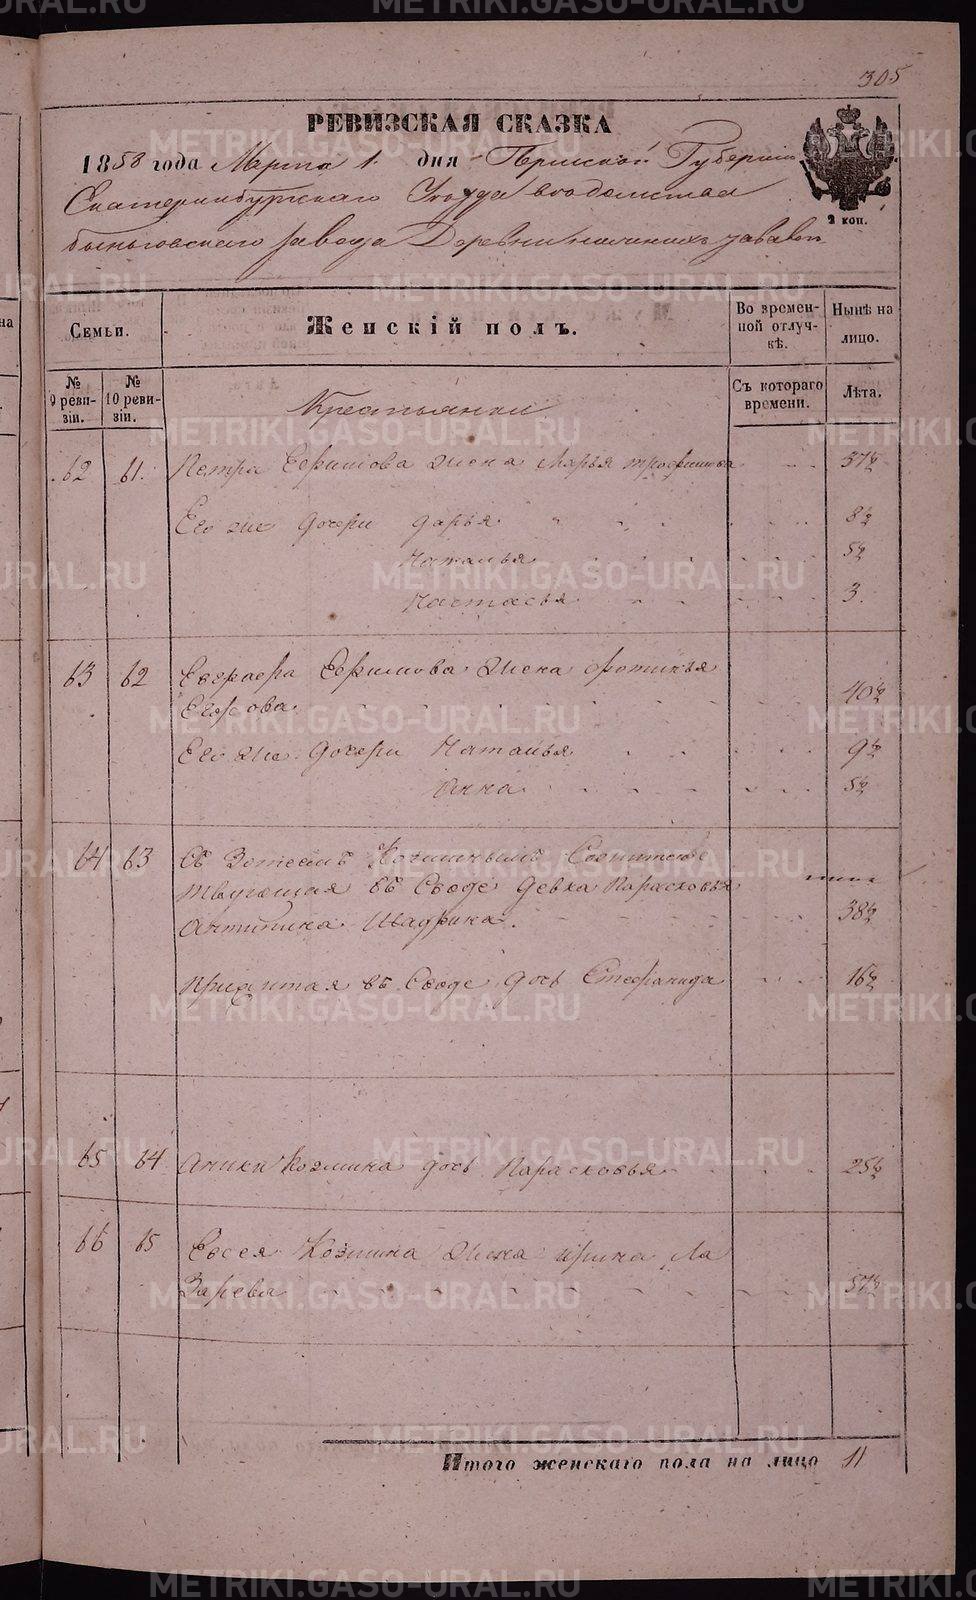 305
РЕВИЗСКАЯ СКАЗКА
1858 года Марта 1. дня Пермской Губернии
Екатеринбургскаго Уезда ведомства
быньговскаго завода Деревни
2 коп.
Семьи. Женскій полъ. Во времен-ной отлуч-кѣ. Нынѣ на лицо.
№ 9 реви-зіи. № 10 реви-зіи. Съ котораго времени. Лѣта.
Крестьянки
62 61. Петра Ефимова Жена Марья трофимова 37½
Его же дочери дарья 8½
Наталья 5½
Настасья 3.
63 62 Евграфа Ефимова Жена фотинья
Егорова 40½
Его же дочери Наталья 9½
Анна 5½
64 63 Съ
въ Своде Девка Парасковья
Антипина Шадрина. 38½
Прижитая въ Своде дочь Стефанида 16½
65 64 Аники Козмина дочь Парасковья 25½
66 65 Евсея Козмина Жена ирина Ла
Зарева 57½
Итого женскаго пола на лицо 11
METRIKI.GASO-URAL.RU